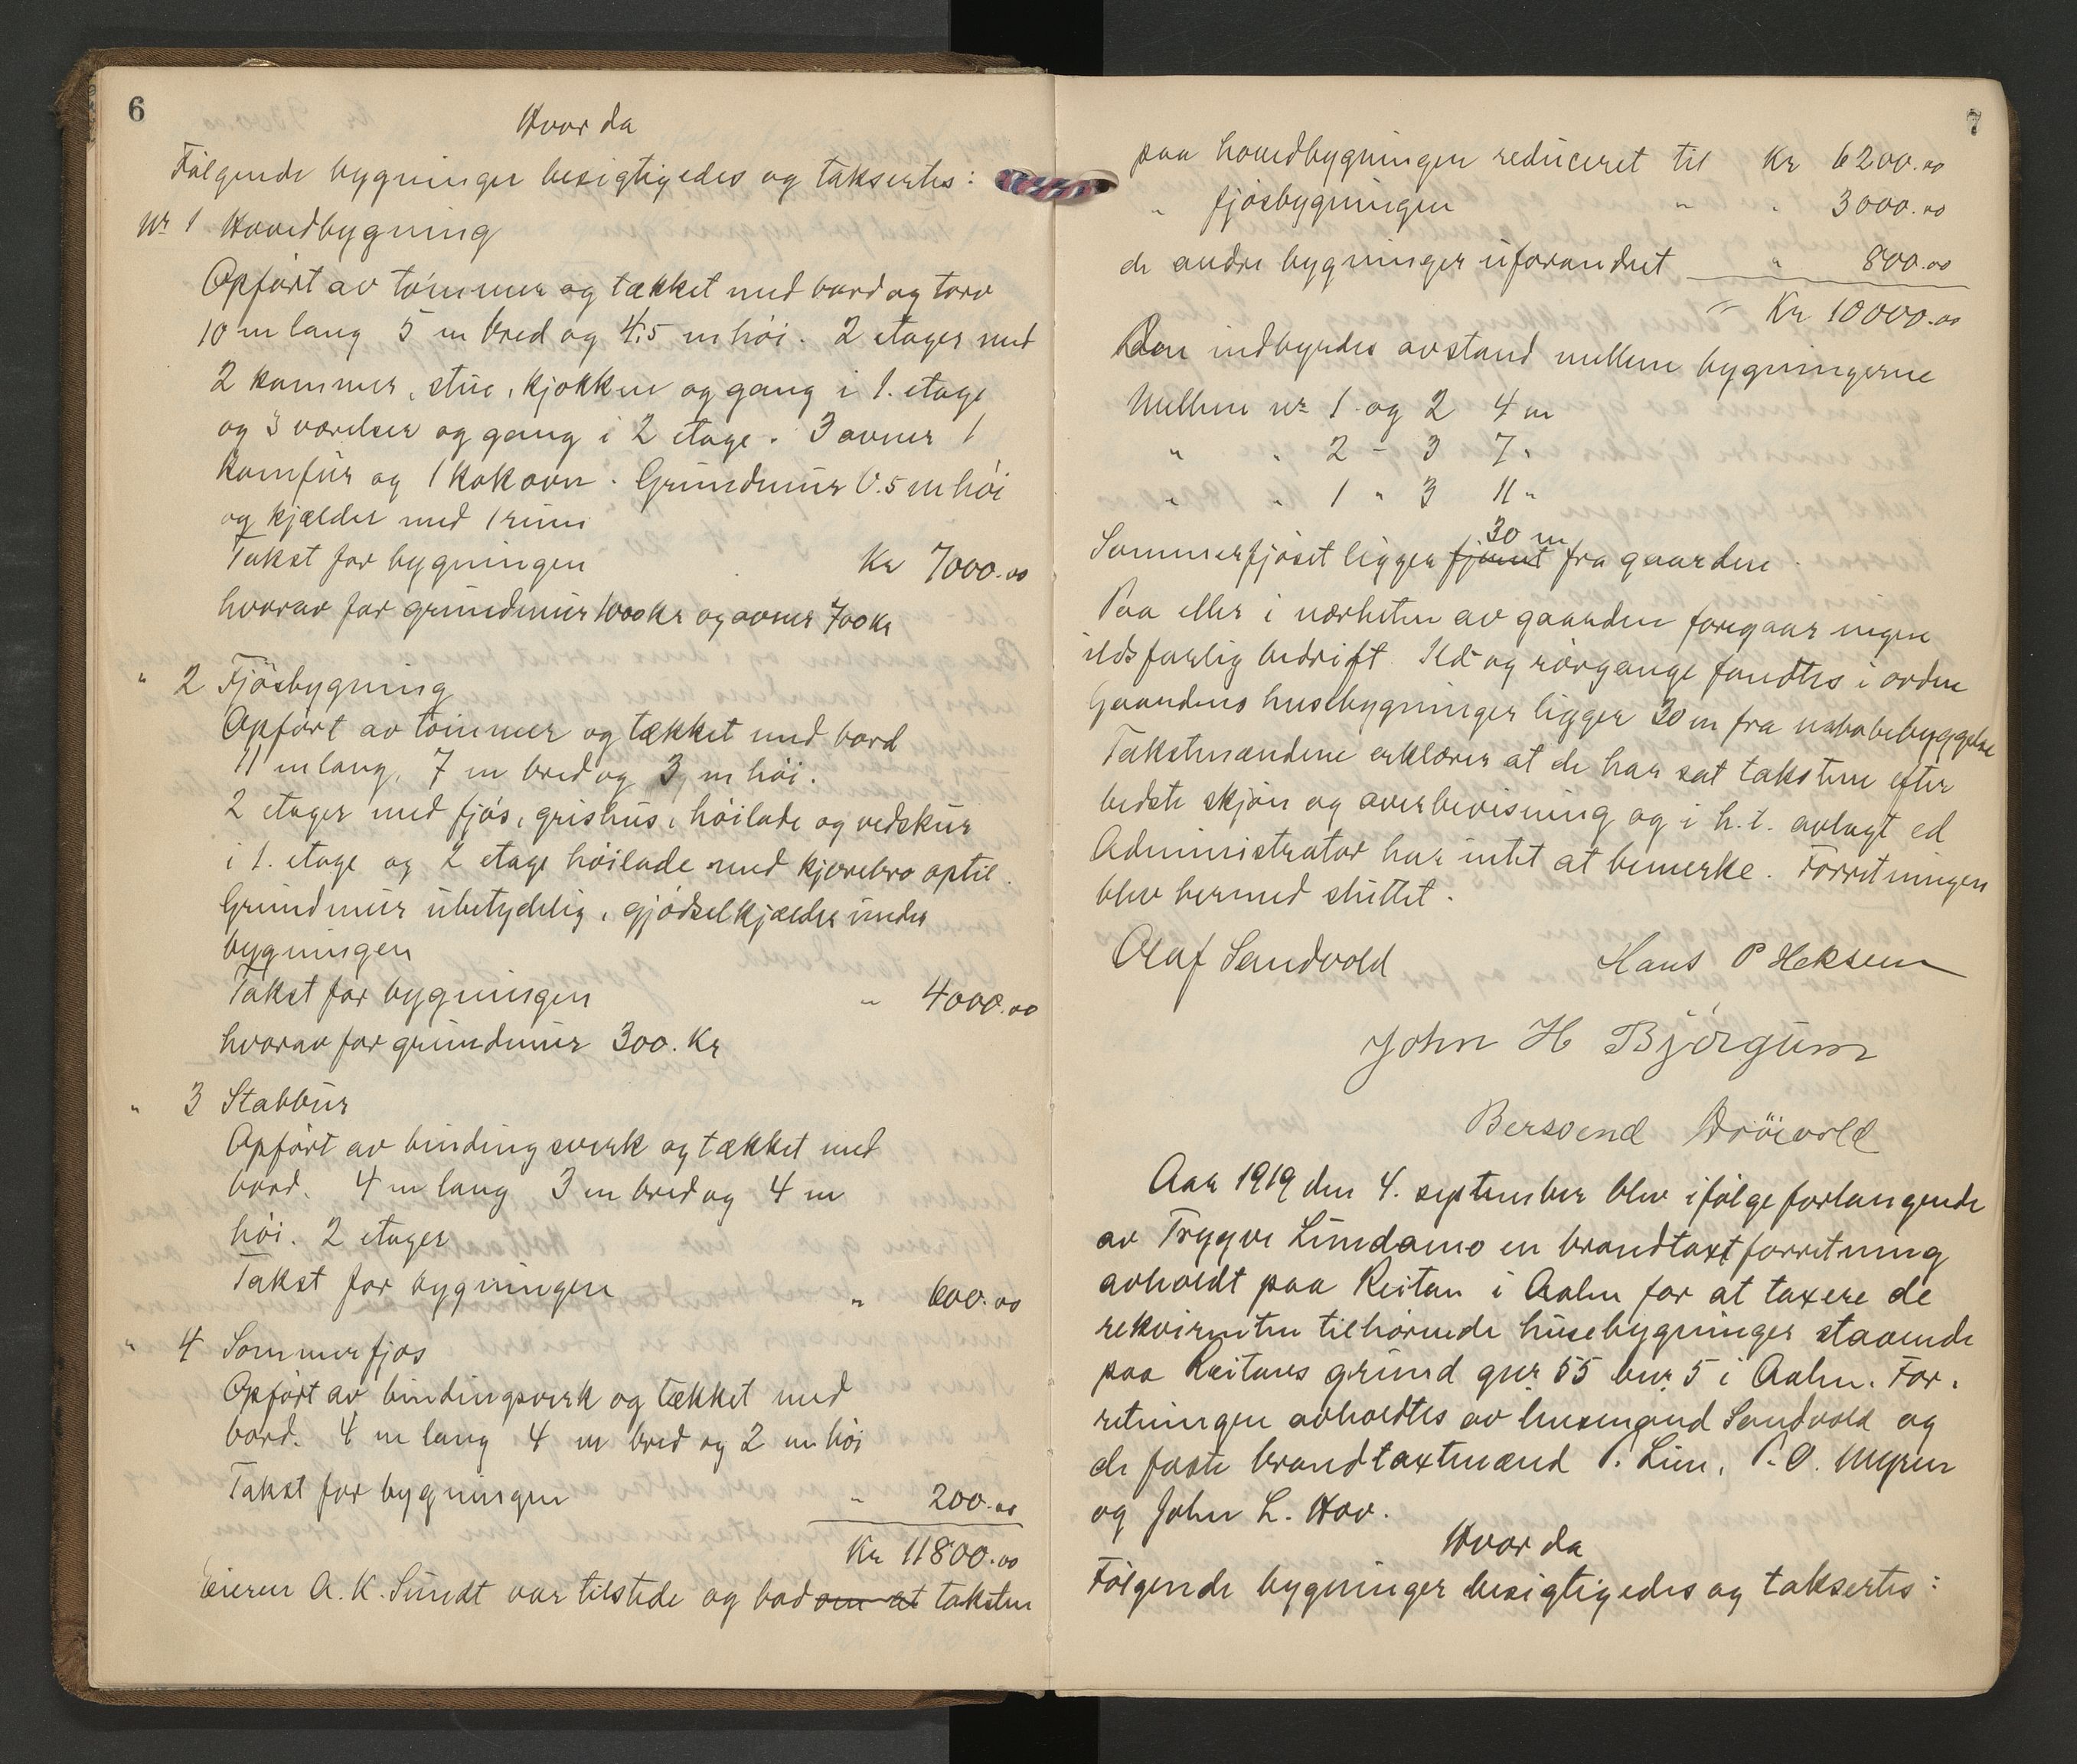 6
Hvor da
Følgende bygninger besigtigedes og taksertes:
Nr 1 Hovedbygning
Opført av tømmer og tækket med bord og torv
10 m lang 5 m bred og 4.5 m høi. 2 etager med
2 kammer, stue, kjøkken og gang i 1. etage
og 3 værelser og gang i 2 etage. 3 ovner 1
komfur og 1 kokovn. Grundmur 0.5 m høi
og kjælder med 1 rum
Takst for bygningen Kr 7000.00
hvorav for grundmur 1000 kr og ovner 700 kr
" 2 Fjøsbygning
Opført av tømmer og tækket med bord
11 m lang, 7 m bred og 3 m høi.
2 etager med fjøs, grishus, høilade og vedskur
i 1. etage og 2 etage høilade med kjørebro optil.
Grundmur ubetydelig, gjødselkjælder under
bygningen
Takst for bygningen " 4000.00
hvorav for grundmur 300. Kr
" 3 Stabbur
Opført av bindingsverk og tækket med
bord. 4 m lang 3 m bred og 4 m
høi. 2 etager
Takst for bygningen " 600.00
" 4 Sommerfjøs
Opført av bindingsverk og tækket med
bord. 4 m lang 4 m bred og 2 m høi
Takst for bygningen " 200.00
Kr 11800.00
Eieren A. K. Sundt var tilstede og bad om at taksten
7
paa hovedbygningen reduceret til Kr 6200.00
" fjøsbygningen " " 3000.00
de andre bygninger uforandret " 800.00
" Kr 10000.00
Den indbyrdes avstand mellem bygningerne
Mellem nr 1 og 2 4 m
" " 2 - 3 7 "
" " 1 " 3 11 "
30 m
Sommerfjøset ligger fjernt fra gaarden.
Paa eller i nærheten av gaarden foregaar ingen
ildsfarlig bedrift. Ild- og rørgange fandtes i orden
Gaardens husebygninger ligger 30 m fra nabobebyggelse
Takstmændene erklærer at de har sat taksten efter
bedste skjøn og overbevisning og i h.t. avlagt ed
Administrator har intet at bemerke. Forretningen
blev hermed sluttet.
Olaf Sandvold Hans P Heksem
John H Bjørgum
Bersvend Drøivold
Aar 1919 den 4. september blev ifølge forlangende
av Trygve Lundamo en brandtaxtforretning
avholdt paa Reitan i Aalen for at taxere de
rekvirenten tilhørende husebygninger staaende
paa Reitans grund gnr. 55 bnr. 5 i Aalen. For-
retningen avholdtes av lensmand Sandvold og
de faste brandtaxtmænd P. Lien, P. O. Myren
og John L. Hov.
Hvor da
Følgende bygninger besigtigedes og taksertes: